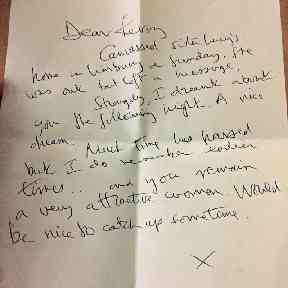 Dear
home in a Sunday. He
was out but left a message.
Strangely, I dreamt about
you the following night. A nice
dream. Much time has passed
but I do remember earlier
times.. and you remain
a very attractive woman. Would
be nice to catch up sometime.
X